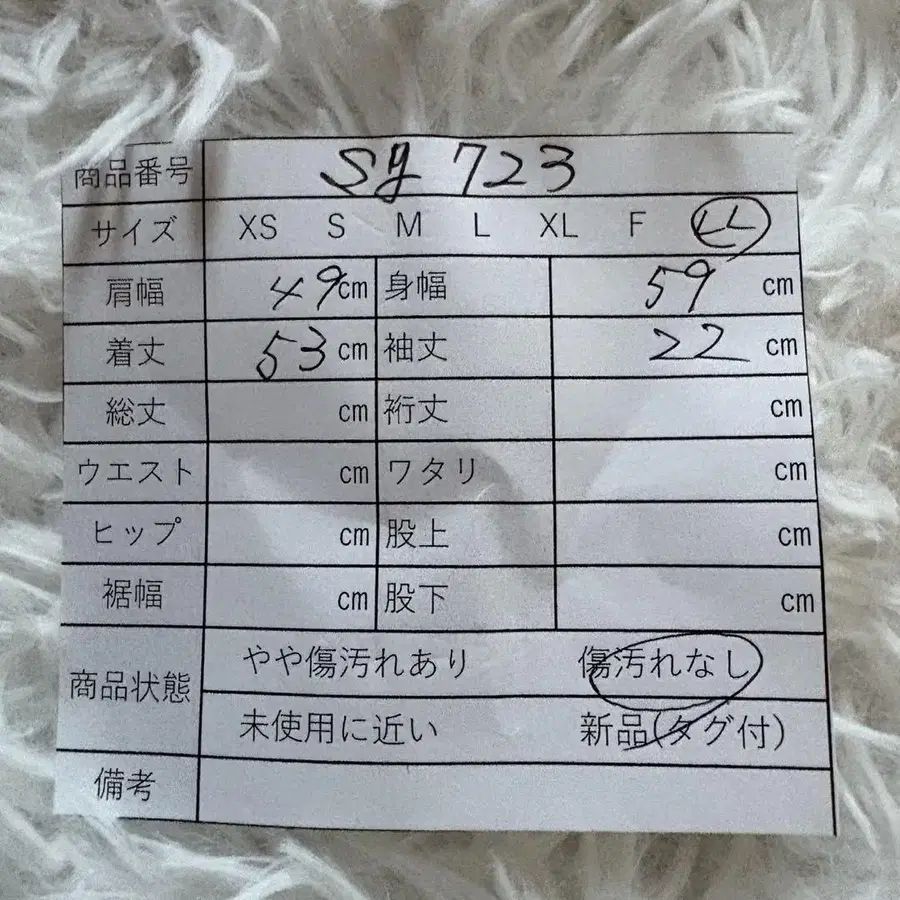 商品番号 Sg 723
サイズ XS S M L XL F LL
肩幅 49cm 身幅 59 cm
着丈 53 cm 袖丈 22 cm
総丈 cm 裄丈 cm
ウエスト cm ワタリ cm
ヒップ cm 股上 cm
裾幅 cm 股下 cm
商品状態 やや傷汚れあり 傷汚れなし
未使用に近い 新品(タグ付)
備考